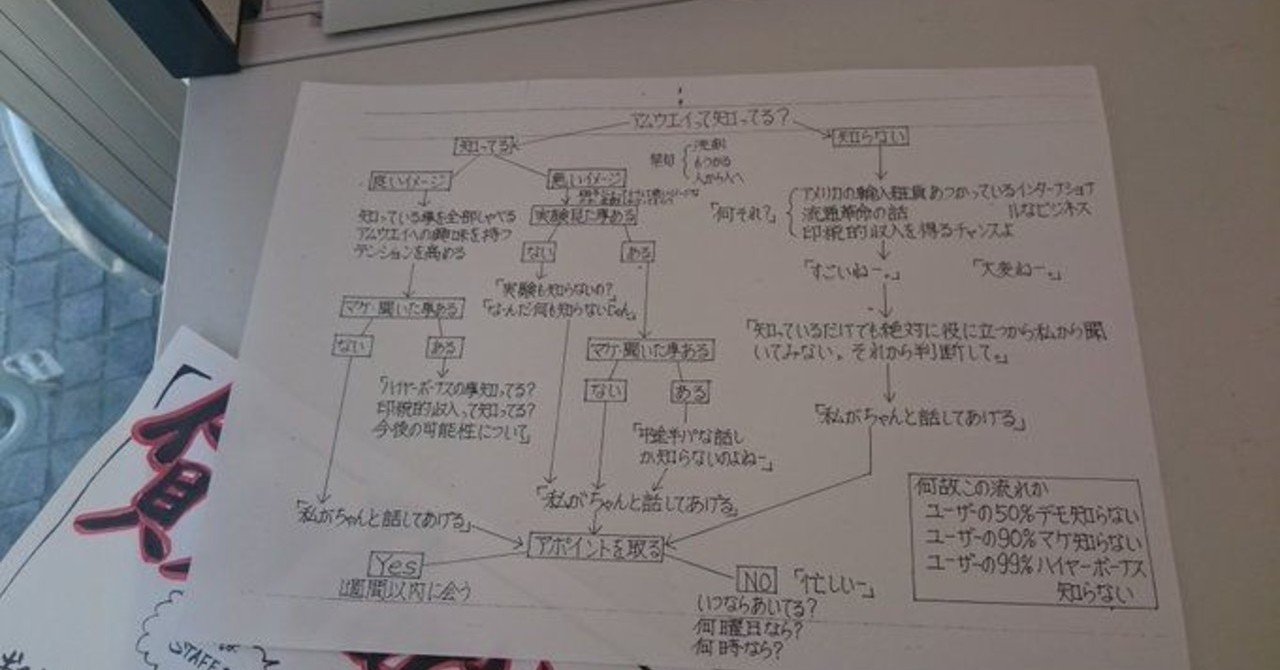 アムウエイって知ってる?
知ってる
知らない
早切
洗剤
もうかる
人から人へ
良いイメージ
悪いイメージ
知っている事を全部しゃべる
アムウエイへの興味を持つ
テンションを高める
実験見た事ある
ない
ある
「実験も知らないの?
「なーんだ何も知らないじゃん」
「何それ?」
アメリカの輸入雑貨あつかっているインターナショナルなビジネス
流通革命の話
印税的収入を得るチャンスよ
「すごいねー。」
「大変ねー。」
マケ・聞いた事ある
ない
ある
「ハイヤーボーナスの事知ってる?
印税的収入って知ってる?
今後の可能性について」
マケ・聞いた事ある
ない
ある
「中途半パな話し
か知らないのよねー」
「知っているだけでも絶対に役に立つから私から聞
いてみない。それから判断して。」
「私がちゃんと話してあげる」
「私がちゃんと話してあげる」
「私がちゃんと話してあげる」
アポイントを取る
Yes
1週間以内に会う
NO
「忙しい〜」
いつならあいてる?
何曜日なら?
何時なら?
何故この流れか
ユーザーの50%デモ知らない
ユーザーの90%マケ知らない
ユーザーの99%ハイヤーボーナス
知らない
STAFF